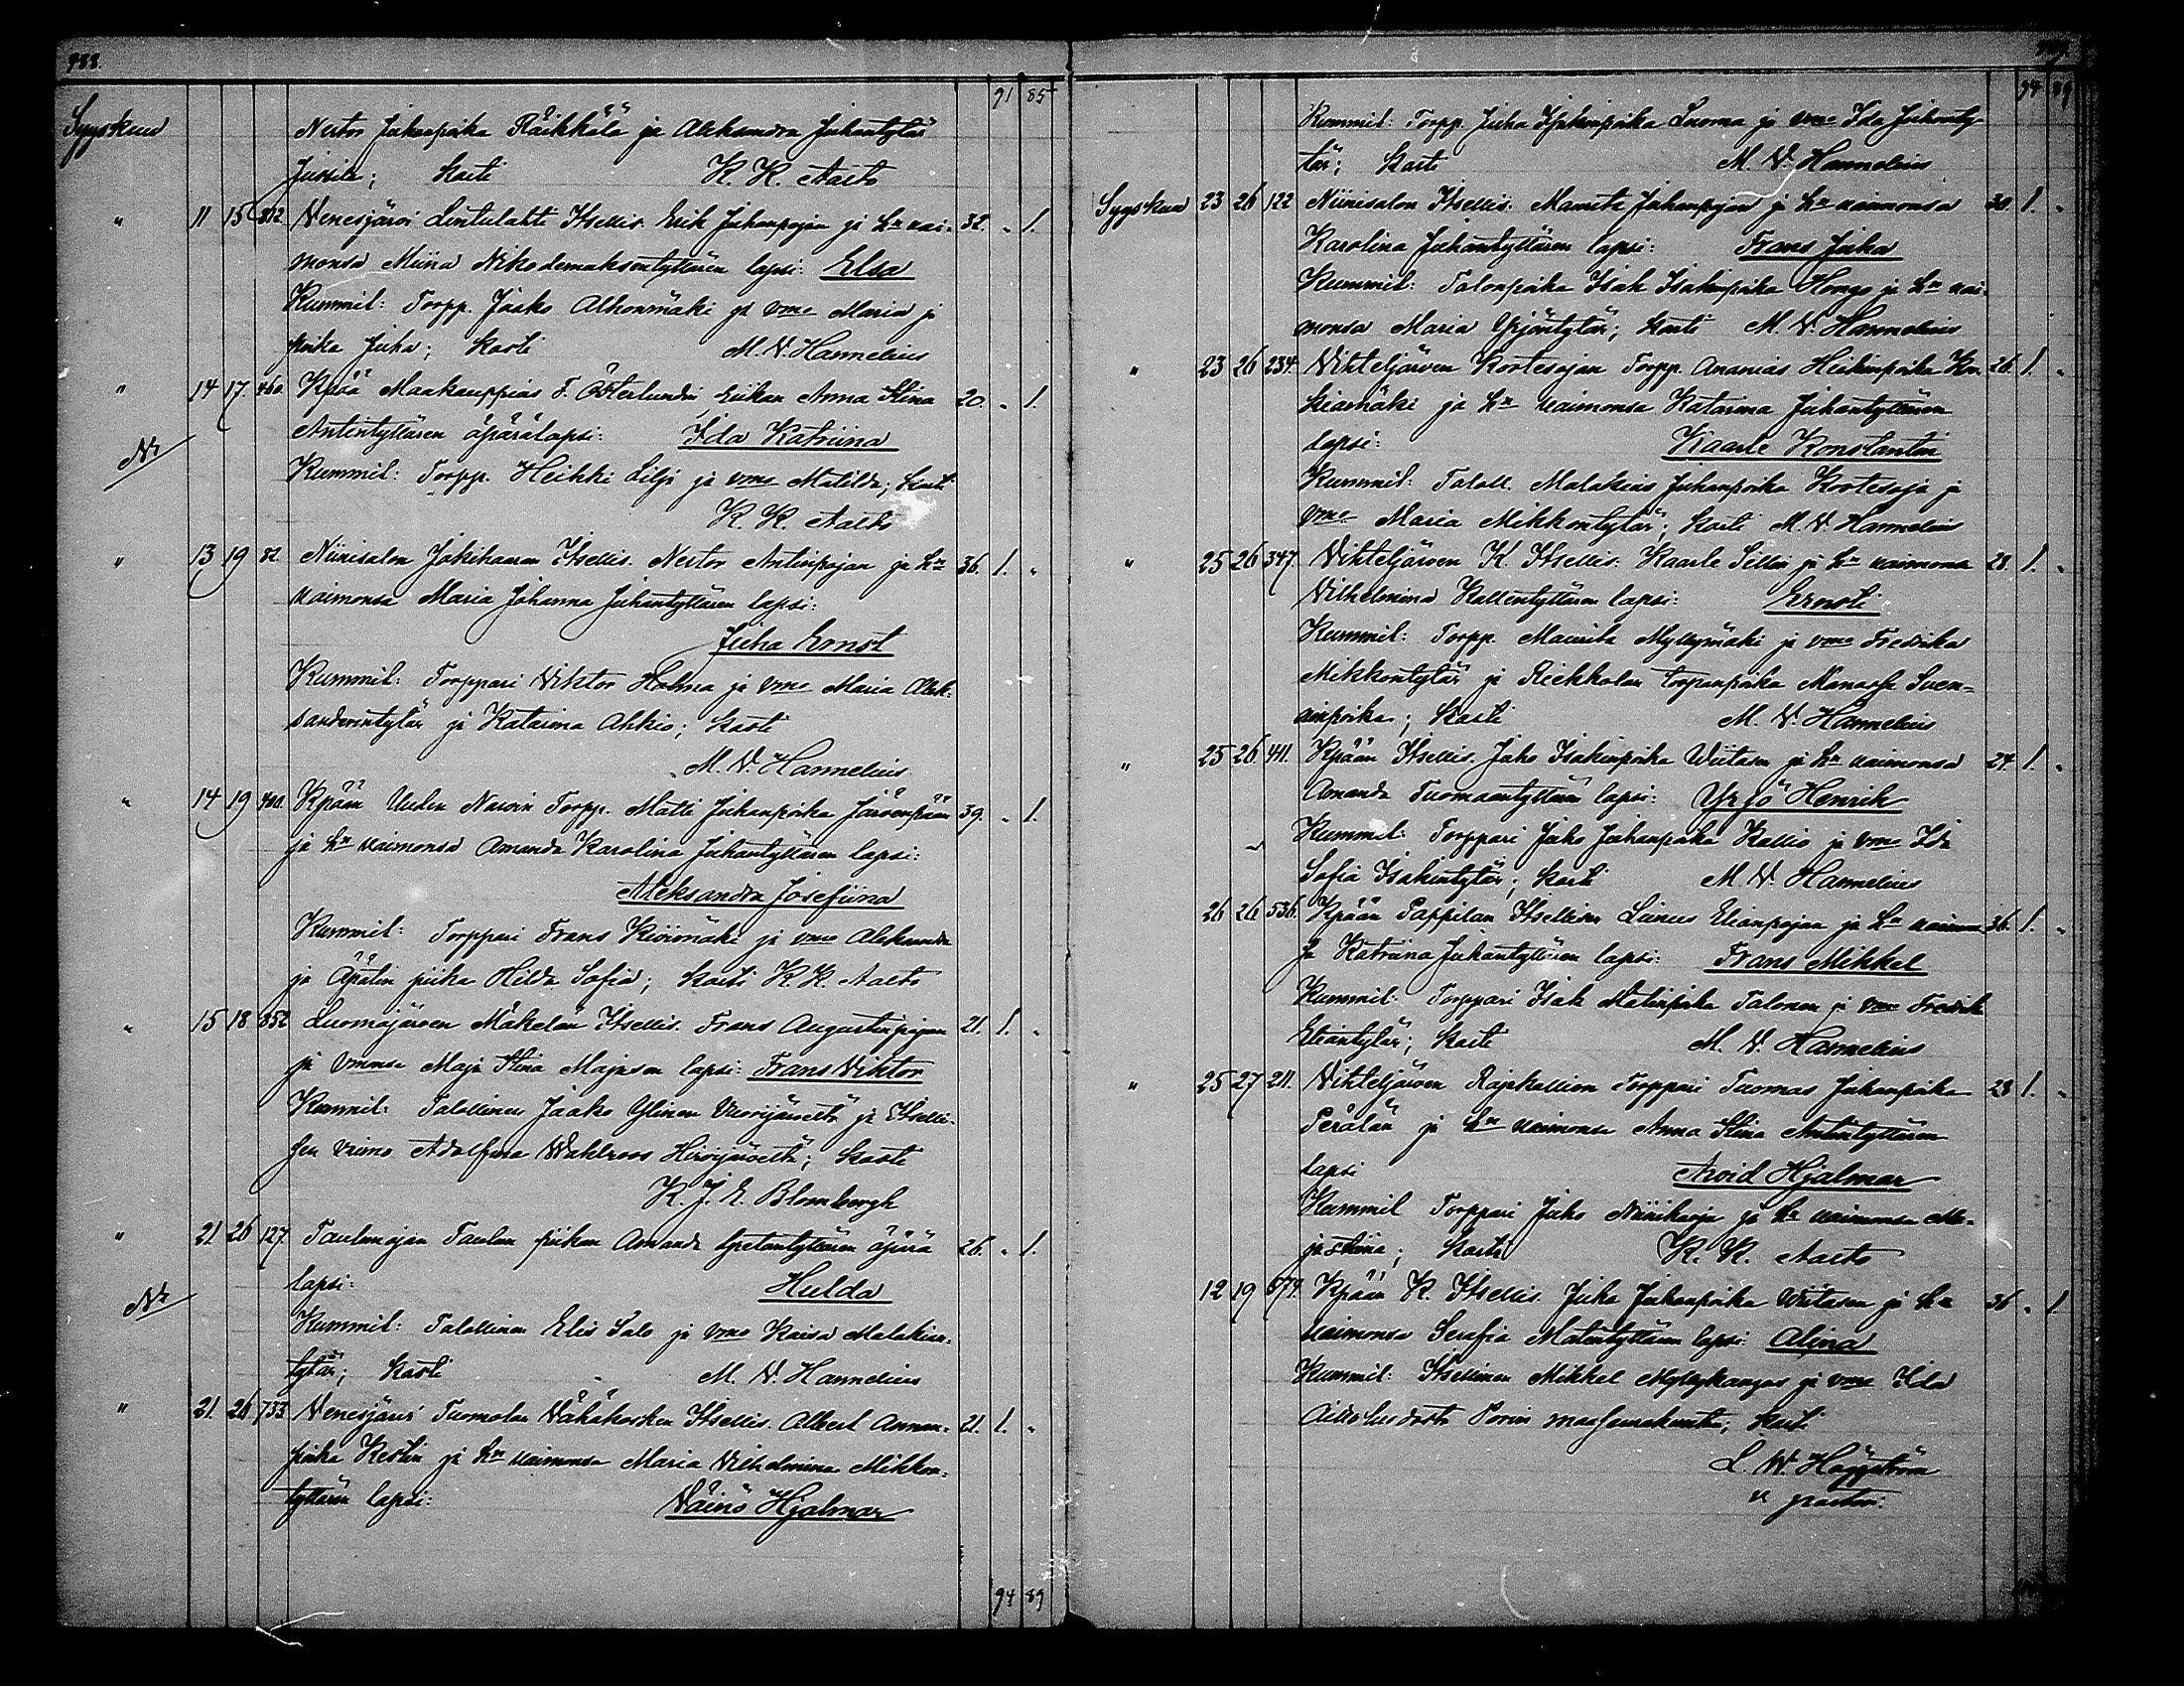 988.
91 85
Syyskuu Nestor Juhanpoika Räikkälä ja Aleksandra Juhantytär
Jussila; Kasti K. K. Aalto
" 11 15 812. Venesjärvi Lintulahti Itsellis. Erik Juhanpojan ja hn vai- 32. " 1.
monsa Miina Nikodemuksentyttären lapsi: Elsa
Kummit: Torpp. Jaako Alhonmäki ja vmo Maria ja
poika Juha; Kasti M. V. Hannelius
" 14 17. 460. Kpää Maakauppias F. Österlundin piikan Anna Stina 20. " 1.
Antintyttären äpärälapsi: Ida Katriina
Kummit: Torpp. Heikki Lilja ja vmo Matilda; Kasti
K. K. Aalto
" 13 19 82. Niinisalon Jokiharan Itsellis. Nestor Antinpojan ja hn 36. 1. "
vaimonsa Maria Johanna Juhantyttären lapsi:
Juha Ernst
Kummit: Torppari Viktor Halma ja vmo Maria Alek-
sanderintytär ja Katarina Ahkio; Kasti
M. V. Hannelius
" 14 19 400. Kpään Uuden Nawin Torpp. Matti Juhanpoika Järvenpään 39. " 1.
ja hn vaimonsa Amanda Karolina Juhantyttären lapsi:
Aleksandra Josefiina
Kummit: Torppari Frans Kivimäki ja vmo Aleksandra
ja Äpätin piika Hilda Sofia; Kasti K. K. Aalto
" 15 18 852 Luomajärven Mäkelän Itsellis. Frans Augustinpojan 21. 1. "
ja vmonsa Maja Stina Majasen lapsi: Frans Viktor
Kummit: Talollinen Jaako Ylinen Vuorijärveltä ja Itselli-
sen vaimo Adolfina Wahlroos Hirvijärveltä; Kasti
K. J. E. Blombergh
" 21 26 127. Taulunojan Taulun piikan Amanda Gretantyttären äpärä 26. " 1.
lapsi: Hulda
Kummit: Talollinen Elis Salo ja vmo Kaisa Malakian-
tytär; Kasti M. V. Hannelius
" 21. 26 733 Venesjärvi Tuomolan Vähäkosken Itsellis. Albert Annan- 21. 1. "
poika Kestin ja hn vaimonsa Maria Vilhelmina Mikkon-
tyttären lapsi: Väinö Hjalmar
94 89
94 89
Kummit: Torpp. Juha Isakinpoika Luoma ja vmo Ida Juhanty-
tär; Kasti M. V. Hannelius
Syyskuu 23 26 122 Niinisalon Itsellis. Maurits Juhanpojan ja hn vaimonsa 30. 1. "
Karolina Juhantyttären lapsi: Frans Juha
Kummit: Talonpoika Isak Isakinpoika Hongo ja hn vai-
monsa Maria Yrjöntytär; Kasti M. V. Hannelius
" 23 26 234. Vihteljärven Kortesojan Torpp. Ananias Heikinpoika Kos- 26. 1. "
kiacmäki ja hn vaimonsa Katarina Juhantyttären
lapsi: Kaarle Konstantin
Kummit: Taloll. Malakias Juhanpoika Kortesoja ja
vmo Maria Mikkontytär; Kasti M. V. Hannelius
" 25 26 347. Vihteljärven K. Itsellis. Kaarle Sillin ja hn vaimonsa 28. 1. "
Vilhelmina Kallentyttären lapsi: Ernsti
Kummit: Torpp. Maurits Myllymäki ja vmo Fredrika
Mikkontytär ja Riekkolan torpanpoika Manasse Sven-
ninpoika; Kasti M. V. Hannelius
" 25 26. 411. Kpään Itsellis. Juho Isakinpoika Wiitasen ja hn vaimonsa 24. 1. "
Amanda Tuomaantyttären lapsi: Yrjö Henrik
Kummit: Torppari Juho Juhanpoika Kallio ja vmo Ida
Sofia Isakintytär; Kasti M. V. Hannelius
26 26 536. Kpään Pappilan Itsellisen Liinus Elianpojan ja hn vaimon- 36. 1. "
sa Katriina Juhantyttären lapsi: Frans Mikkel
Kummit: Torppari Isak Matinpoika Talonen ja vmo Fredrik
Eliantytär; Kasti M. V. Hannelius
" 25 27 211. Vihteljärven Rajakallion Torppari Tuomas Juhanpoika 28 1. "
Perälän ja hn vaimonsa Anna Stina Antintyttären
lapsi Arvid Hjalmar
Kummit Torppari Juho Niinikorja ja hn vaimonsa Ma-
ja Stina; Kasti K. K. Aalto
12 19 579. Kpään K. Itsellis. Juha Juhanpoika Wiitasen ja hn 36 " 1
vaimonsa Serafia Matintyttären lapsi: Alina
Kummit: Itsellinen Mikkel Myllykangas ja vmo Ida
Porin maaseurakunta; Kasti
L. W. Häggström
v pastori: